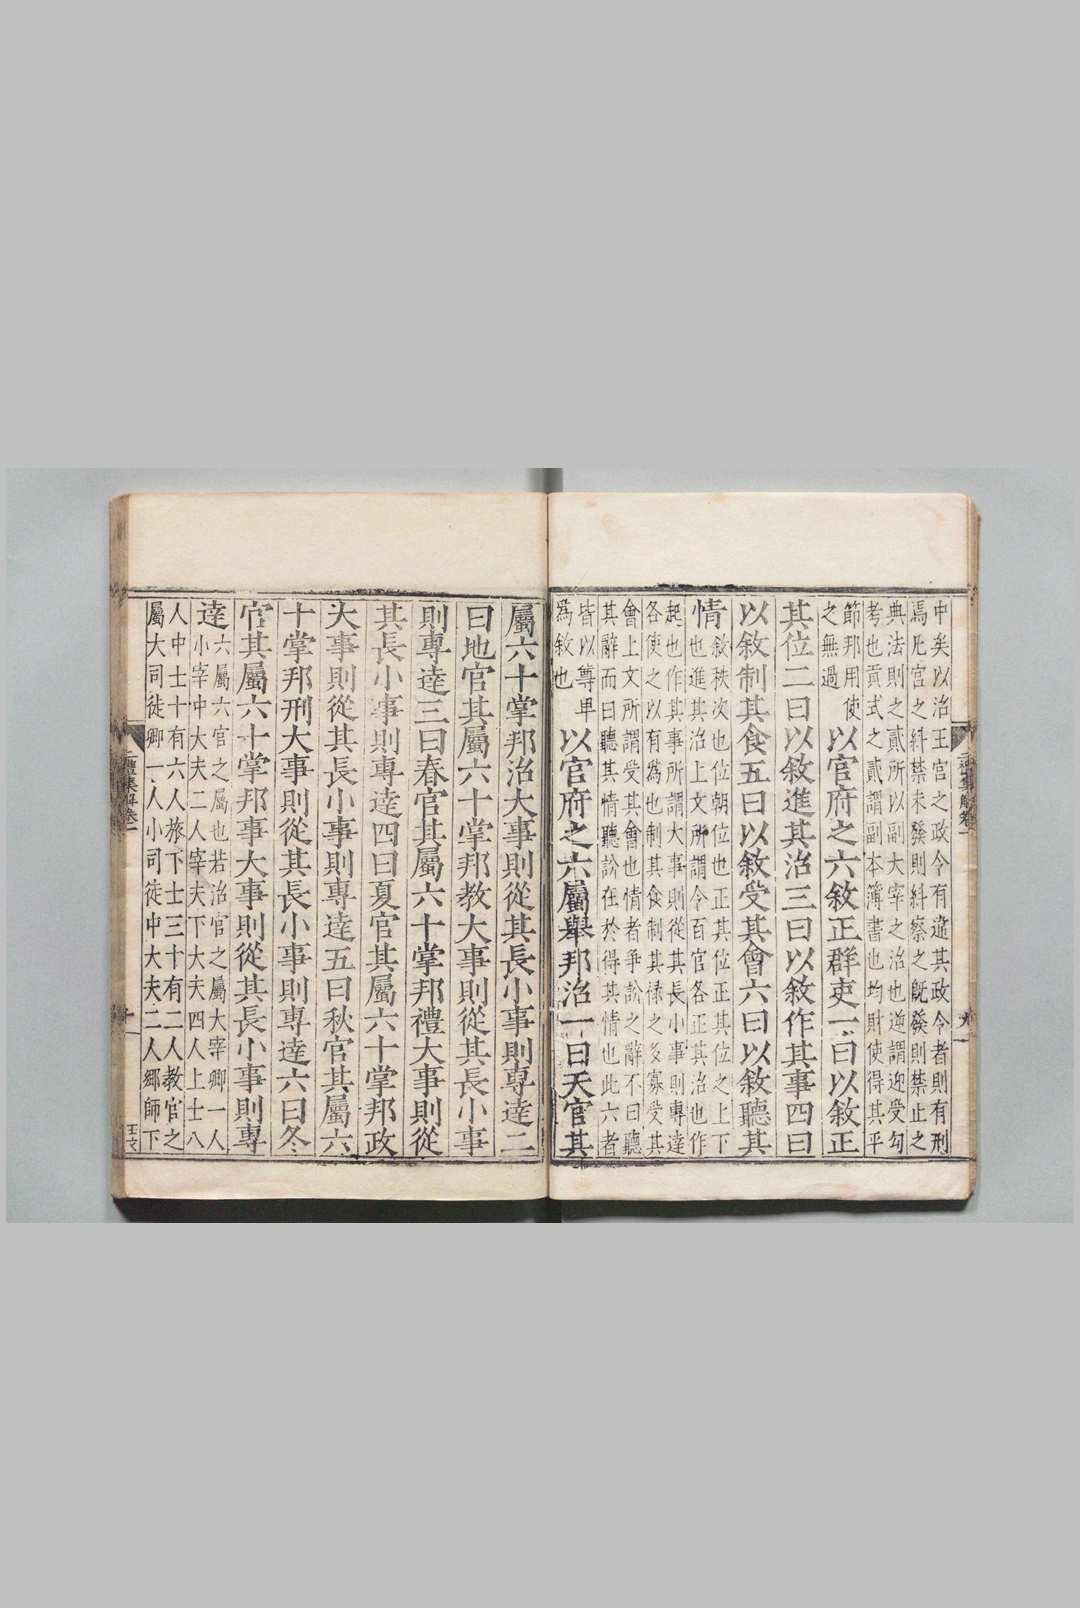 中矣以治王宮之政令有違其政令者則有刑
焉凡宮之糾禁未發則糾察之既發則禁止之
典法則之貳所以副大宰之治也逆謂迎受句
考也貢式之貳謂副本簿書也均財使得其平
節邦用使
之無過
以官府之六敘正群吏一曰以敘正
其位二曰以敘進其治三曰以敘作其事四曰
以敘制其食五曰以敘受其會六曰以敘聽其
情
敘秩次也位朝位也正其位正其位之上下
也進其治上文所謂令百官各正其治也作
起也作其事所謂大事則從其長小事則專達
各使之以有為也制其食制其祿之多寡受其
會上文所謂受其會也情者爭訟之辭不曰聽
其辭而曰聽其情聽訟在於得其情也此六者
皆以尊卑
為敘也
以官府之六屬舉邦治一曰天官其
屬六十掌邦治大事則從其長小事則專達二
曰地官其屬六十掌邦教大事則從其長小事
則專達三曰春官其屬六十掌邦禮大事則從
其長小事則專達四曰夏官其屬六十掌邦政
大事則從其長小事則專達五曰秋官其屬六
十掌邦刑大事則從其長小事則專達六曰冬
官其屬六十掌邦事大事則從其長小事則專
達
六屬六官之屬也若治官之屬大宰卿一人
小宰中大夫二人宰夫下大夫四人上士八
人中士十有六人旅下士三十有二人教官之
屬大司徒卿一人小司徒中大夫二人鄉師下
二禮集解卷一